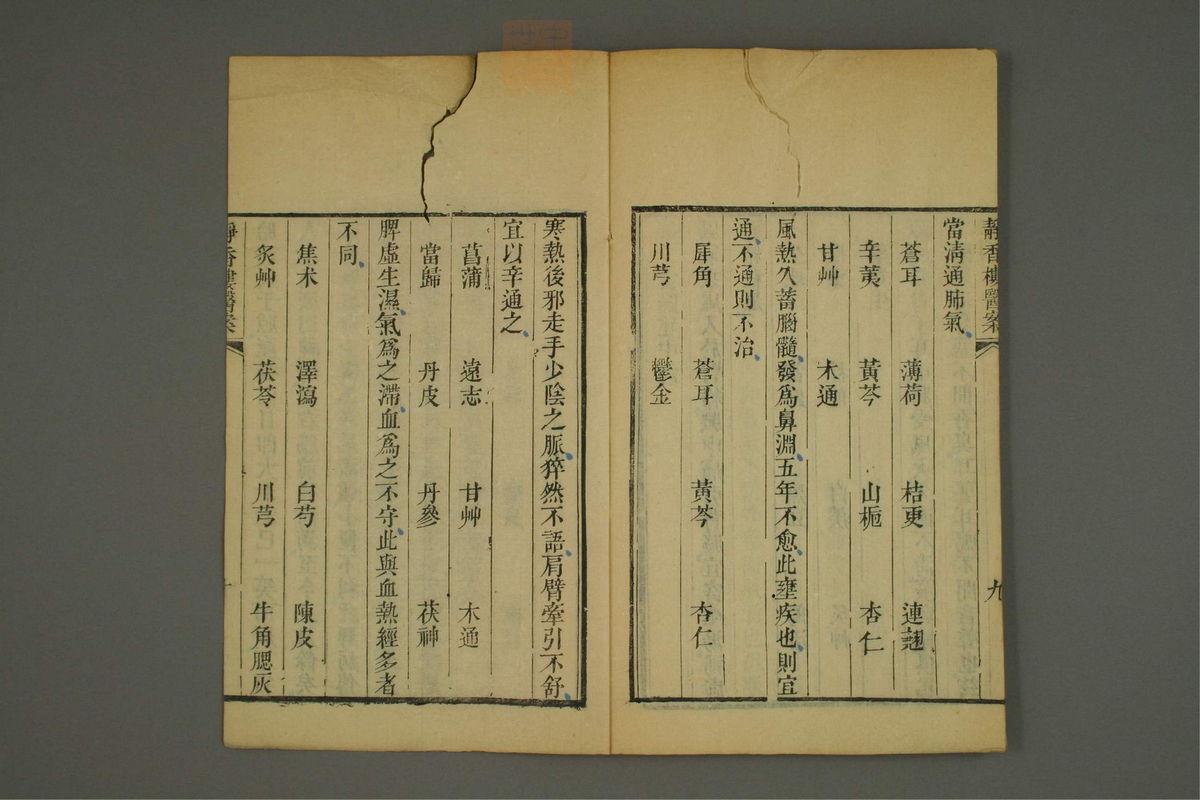 靜香樓醫案
九
當淸通肺氣
蒼耳 薄荷 桔更 連翹
辛荑 黃芩 山栀 杏仁
甘艸 木通
風熱久蓄腦髓發爲鼻淵五年不愈此壅疾也則宜
通不通則不治
犀角 蒼耳 黃芩 杏仁
川芎 鬱金
寒熱後邪走手少陰之脈猝然不語肩臂牽引不舒
宜以辛通之
菖蒲 遠志 甘艸 木通
當歸 丹皮 丹參 茯神
脾虛生濕氣爲之滯血爲之不守此與血熱經多者
不同
焦术 澤瀉 白芍 陳皮
炙艸 茯苓 川芎 牛角腮灰
靜香樓醫案